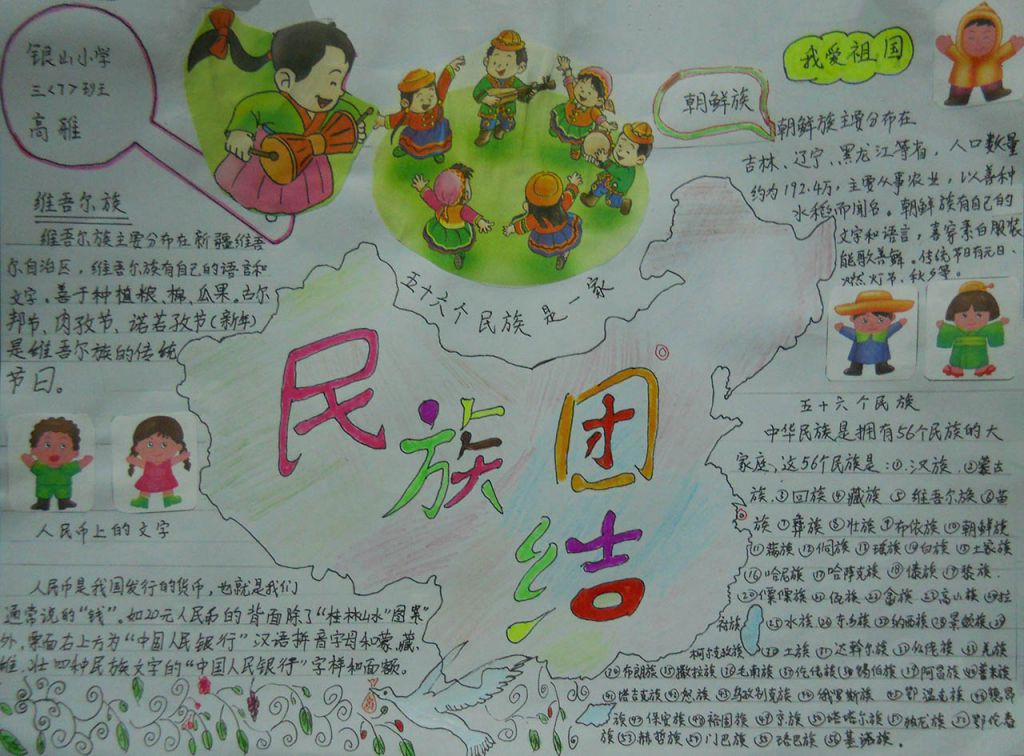 银山小学
三<7>班
高雅
维吾尔族
维吾尔族主要分布在新疆维吾
尔自治区，维吾尔族有自己的语言和
文字。善于种植粮、棉、瓜果。古尔
邦节、肉孜节、诺若孜节（新年）
是维吾尔族的传统
节日。
人民币上的文字
人民币是我国发行的货币，也就是我们
通常说的“钱”。如20元人民币的背面除了“桂林山水”图案
外，票面右上方为“中国人民银行”汉语拼音字母和蒙、藏、
维、壮四种民族文字的“中国人民银行”字样和面额。
五十六个民族是一家
民族团结
我爱祖国
朝鲜族
朝鲜族主要分布在
吉林、辽宁、黑龙江等省，人口数量
约为192.4万，主要从事农业，以善种
水稻而闻名。朝鲜族有自己的
文字和语言，喜穿素白服装
能歌善舞。传统节日有元日、
燃灯节、秋夕等。
五十六个民族
中华民族是拥有56个民族的大
家庭，这56个民族是：①汉族 ②蒙古
族 ③回族 ④藏族 ⑤维吾尔族 ⑥苗
族 ⑦彝族 ⑧壮族 ⑨布依族 ⑩朝鲜族
⑪满族 ⑫侗族 ⑬瑶族 ⑭白族 ⑮土家族
⑯哈尼族 ⑰哈萨克族 ⑱傣族 ⑲黎族
⑳傈僳族 ㉑佤族 ㉒畲族 ㉓高山族 ㉔拉
祜族 ㉕水族 ㉖东乡族 ㉗纳西族 ㉘景颇族 ㉙
柯尔克孜族 ㉚土族 ㉛达斡尔族 ㉜仫佬族 ㉝羌族
㉞布朗族 ㉟撒拉族 ㊱毛南族 ㊲仡佬族 ㊳锡伯族 ㊴阿昌族 ㊵普米族
㊶塔吉克族 ㊷怒族 ㊸乌孜别克族 ㊹俄罗斯族 ㊺鄂温克族 ㊻德昂
族 ㊼保安族 ㊽裕固族 ㊾京族 ㊿塔塔尔族 独龙族 鄂伦春
族 赫哲族 门巴族 珞巴族 基诺族